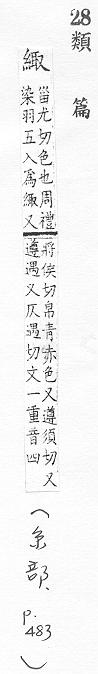 28類篇
緅
甾尤切色也周禮
染羽五入為緅又
將侯切帛青赤色又遵須切又
遵遇又仄遇切文一重音四
(糸部、
p.
483)